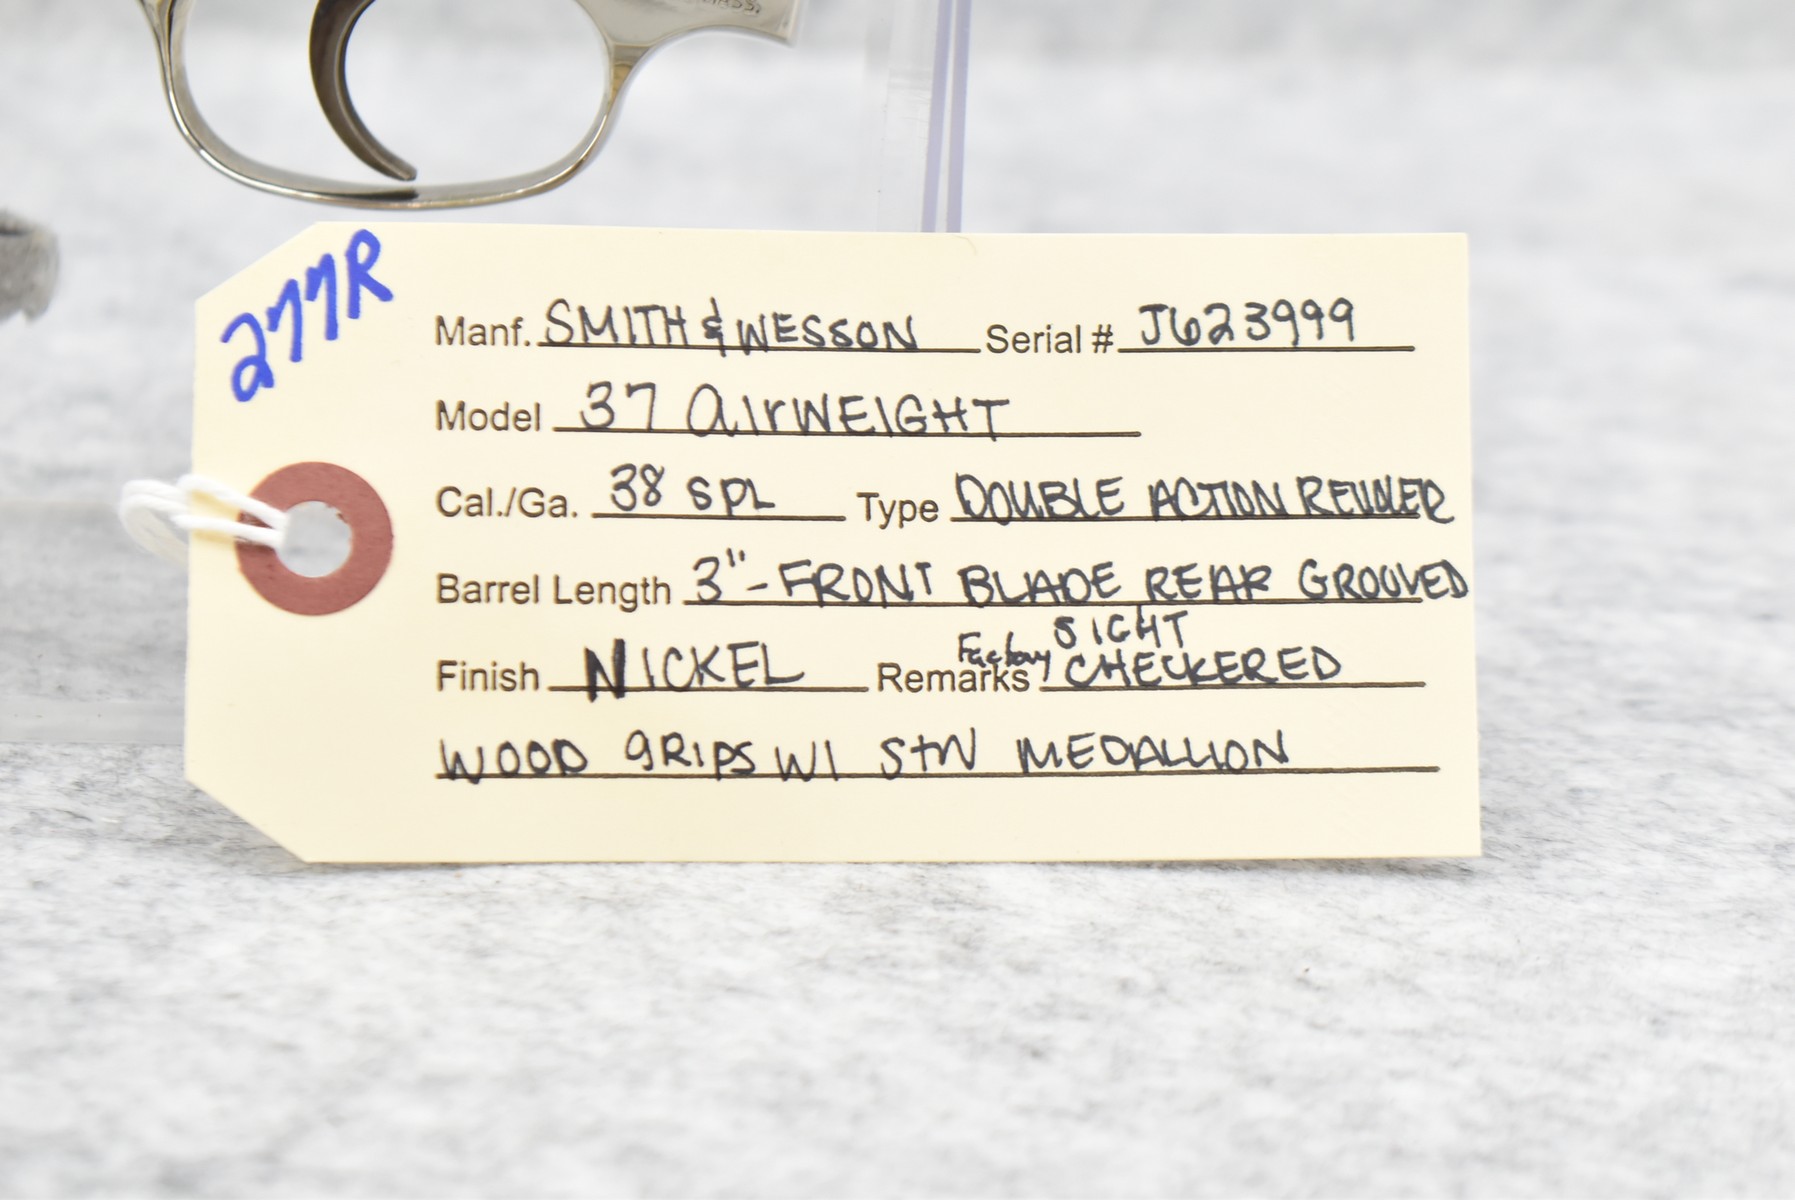 277R
Manf. SMITH & WESSON Serial # J623999
Model 37 AIRWEIGHT
Cal./Ga. 38 SPL Type DOUBLE ACTION REVOLVER
Barrel Length 3"-FRONT BLADE REAR GROOVED
SIGHT
Finish NICKEL Remarks Factory CHECKERED
WOOD GRIPS W/ S+W MEDALLION